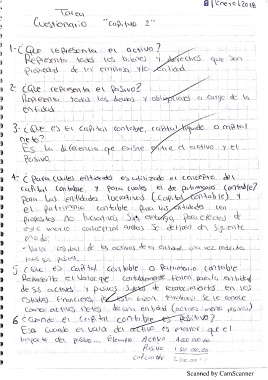 8/Enero/2018
Tarea
Cuestionario "capitulo 2"
1-¿Que representa el activo?
Representa todos los bienes y derechos que son
propiedad de la empresa y/o entidad.
2-¿Que representa el pasivo?
Representa todas las deudas y obligaciones a cargo de la
entidad.
3-¿Que es el capital contable, capital liquido o capital
neto?
Es la diferencia que existe entre el activo y el
Pasivo.
4-¿Para cuales entidades es utilizado el concepto del
capital contable y para cuales el de patrimonio contable?
Para las entidades lucrativas (Capital contable) y
el patrimonio contable para las entidades con
propositos no lucrativos, sin embargo, para efectos de
este marco conceptual ambos se definen del siguiente
modo:
Valor residual de los activos de la entidad una vez deducidos
todos sus pasivos.
5 ¿Que es capital contable o Patrimonio contable
Representa el valor que contablemente tiene para la entidad
de sus activos y pasivos sujetos de reconocimiento en los
estados financieros, por esta razon tambien se le conoce
como activos netos de una entidad (activos menos pasivos)
6 ¿cuando el capital contable es Positivo?
Es cuando el valor del activo es mayor que el
importe del pasivo... Ejemplo Activo
Pasivo
Scanned by CamScanner